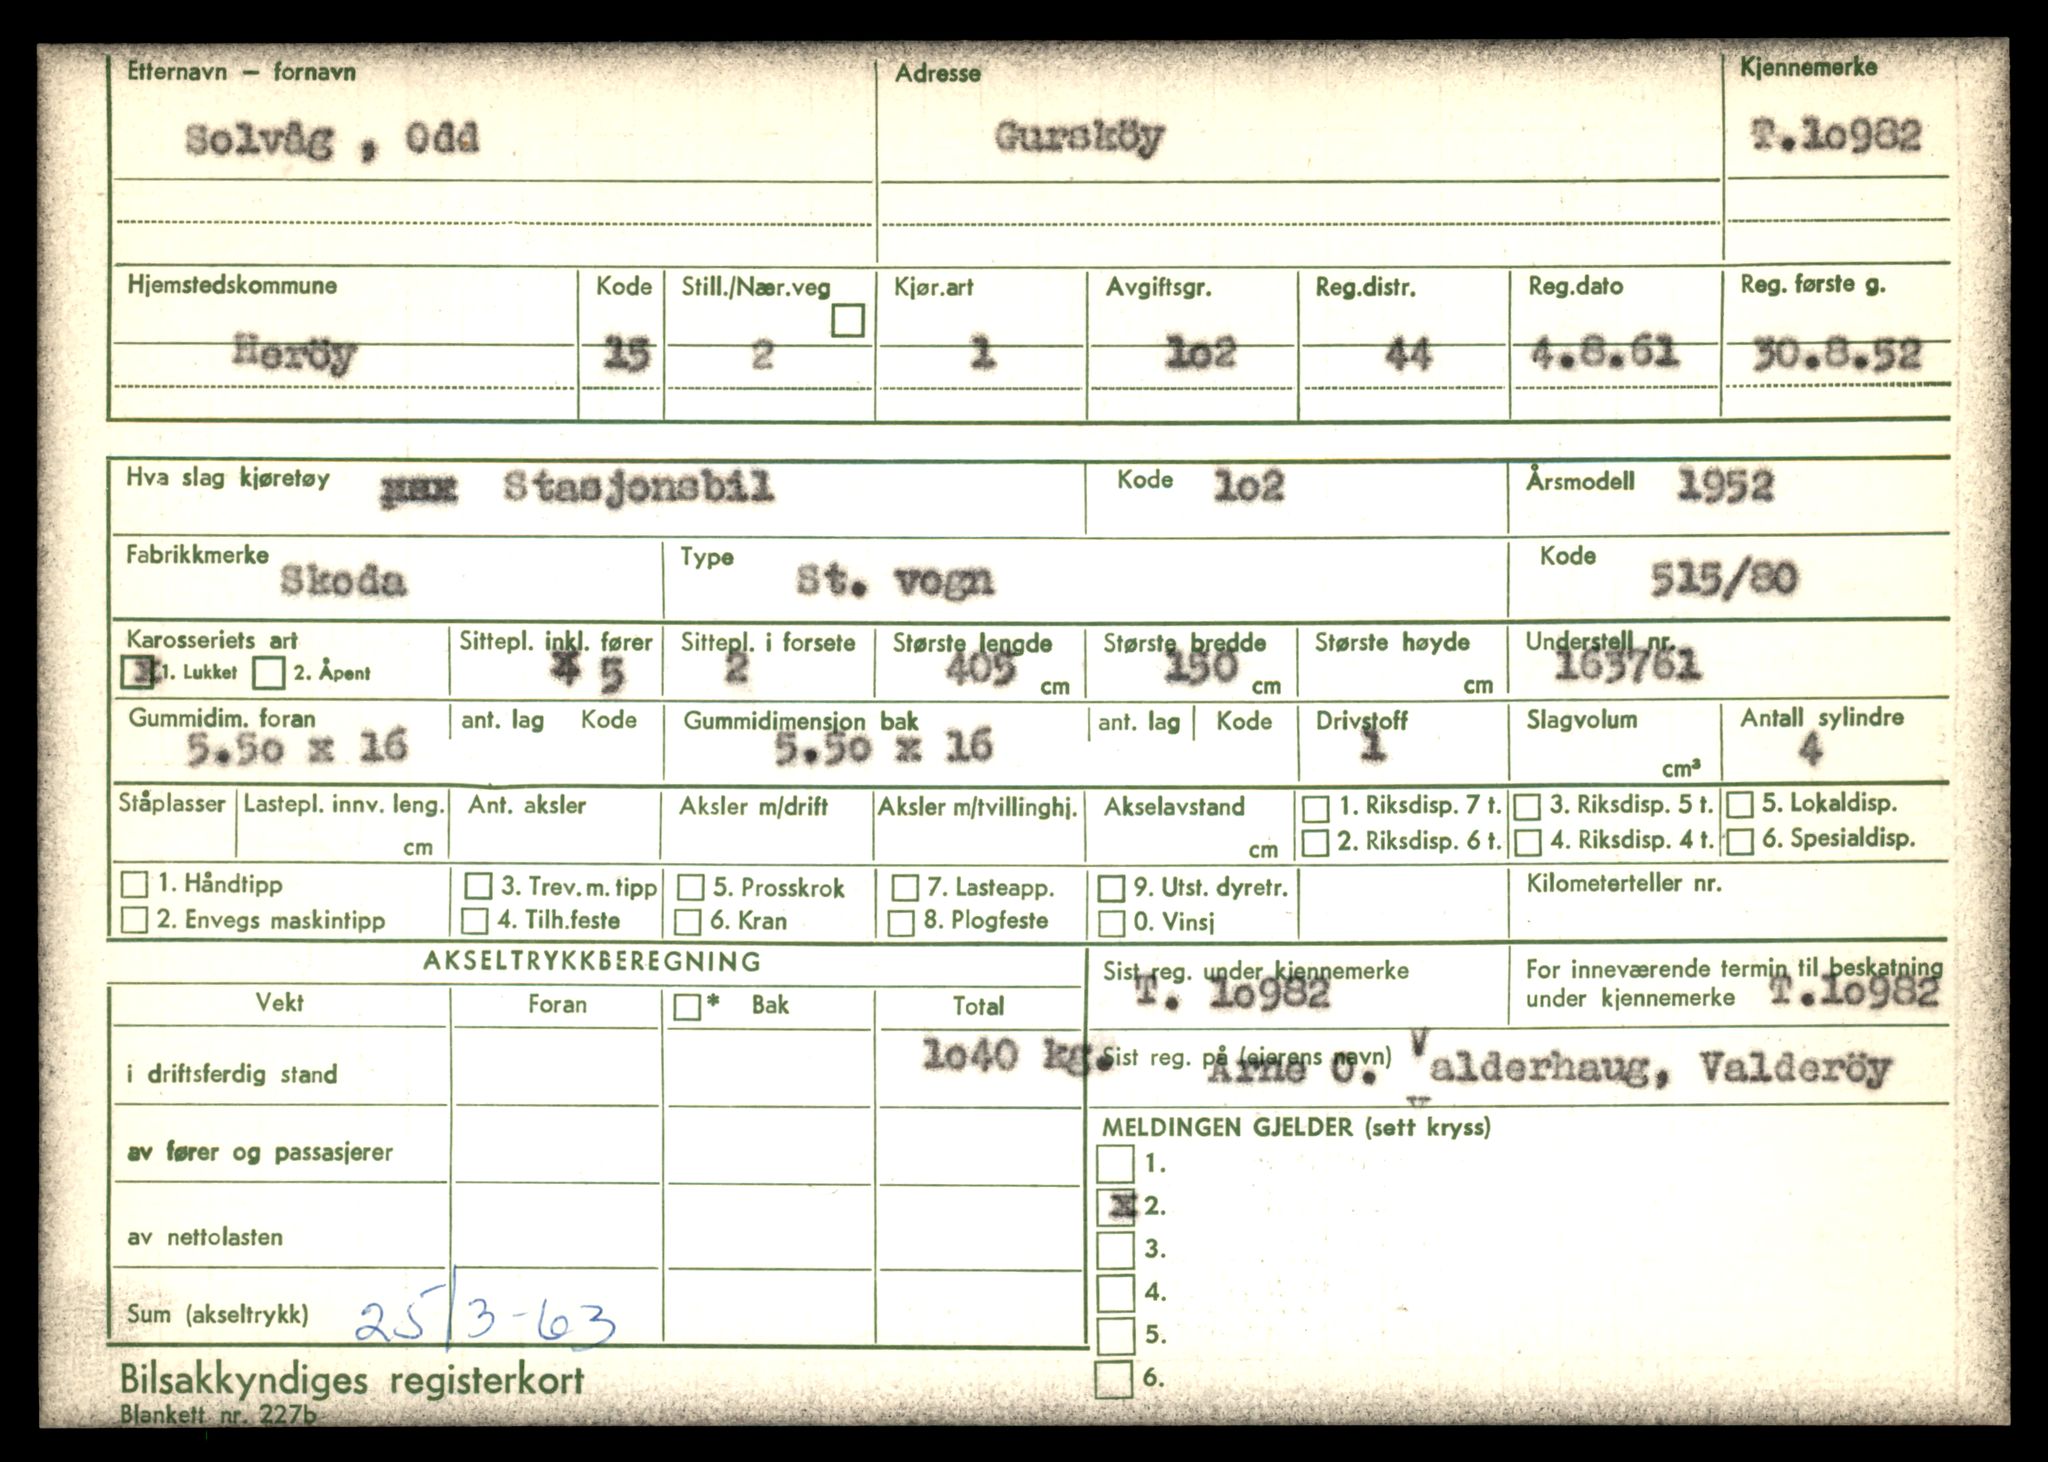 Etternavn – fornavn Adresse Kjennemerke
Solvåg , Odd Gursköy T.lo982
Hjemstedskommune Kode Still./Nær.veg Kjør.art Avgiftsgr. Reg.distr. Reg.dato Reg. første g.
Heröy 15 2 1 lo2 44 4.8.61 30.8.52
Hva slag kjøretøy Stasjonsbil Kode lo2 Årsmodell 1952
Fabrikkmerke Skoda Type St. vogn Kode 515/80
Karosseriets art Sittepl. inkl. fører Sittepl. i forsete Største lengde Største bredde Største høyde Understell nr.
x 1. Lukket 2. Åpent 4 5 2 405 cm 150 cm cm 163761
Gummidim. foran ant. lag Kode Gummidimensjon bak ant. lag Kode Drivstoff Slagvolum Antall sylindre
5.5o x 16 5.5o x 16 1 cm³ 4
Ståplasser Lastepl. innv. leng. Ant. aksler Aksler m/drift Aksler m/tvillinghj. Akselavstand 1. Riksdisp. 7 t. 3. Riksdisp. 5 t. 5. Lokaldisp.
cm cm 2. Riksdisp. 6 t. 4. Riksdisp. 4 t. 6. Spesialdisp.
1. Håndtipp 3. Trev. m. tipp 5. Prosskrok 7. Lasteapp. 9. Utst. dyretr. Kilometerteller nr.
2. Envegs maskintipp 4. Tilh.feste 6. Kran 8. Plogfeste 0. Vinsj
AKSELTRYKKBEREGNING
Vekt Foran * Bak Total
i driftsferdig stand lo40 kg.
av fører og passasjerer
av nettolasten
Sum (akseltrykk) 25/3-63
Sist reg. under kjennemerke T. lo982
For inneværende termin til beskatning
under kjennemerke T.lo982
Sist reg. på (eierens navn) Arne O. Valderhaug, Valderöy
MELDINGEN GJELDER (sett kryss)
1.
x 2.
3.
4.
5.
6.
Bilsakkyndiges registerkort
Blankett nr. 227b